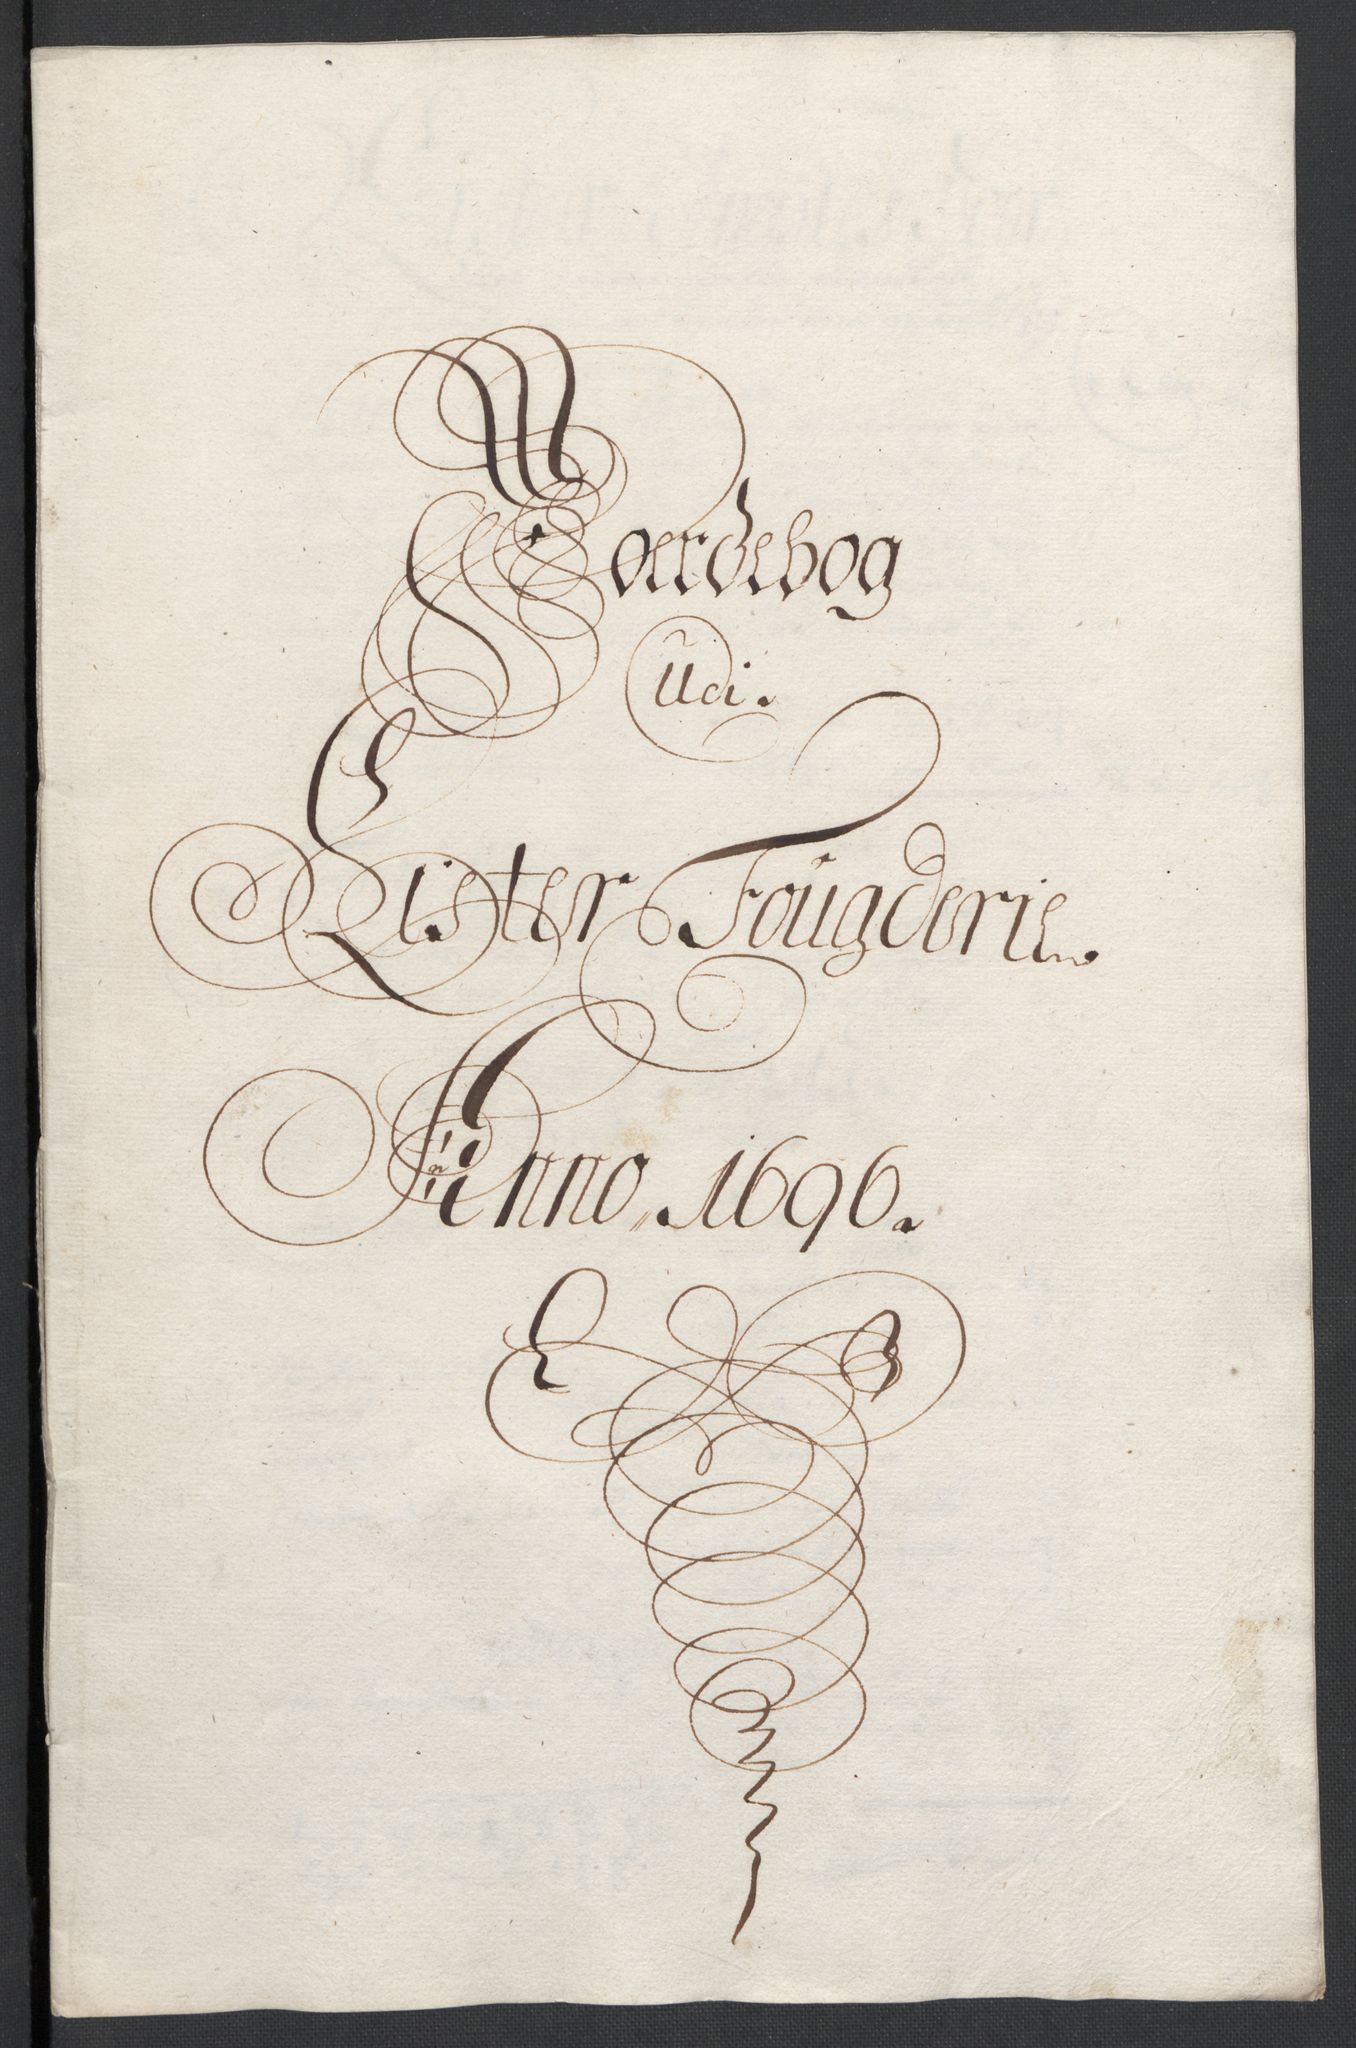 Joerdebog
Udi.
Lister Foügderie.
Anno. 1696.